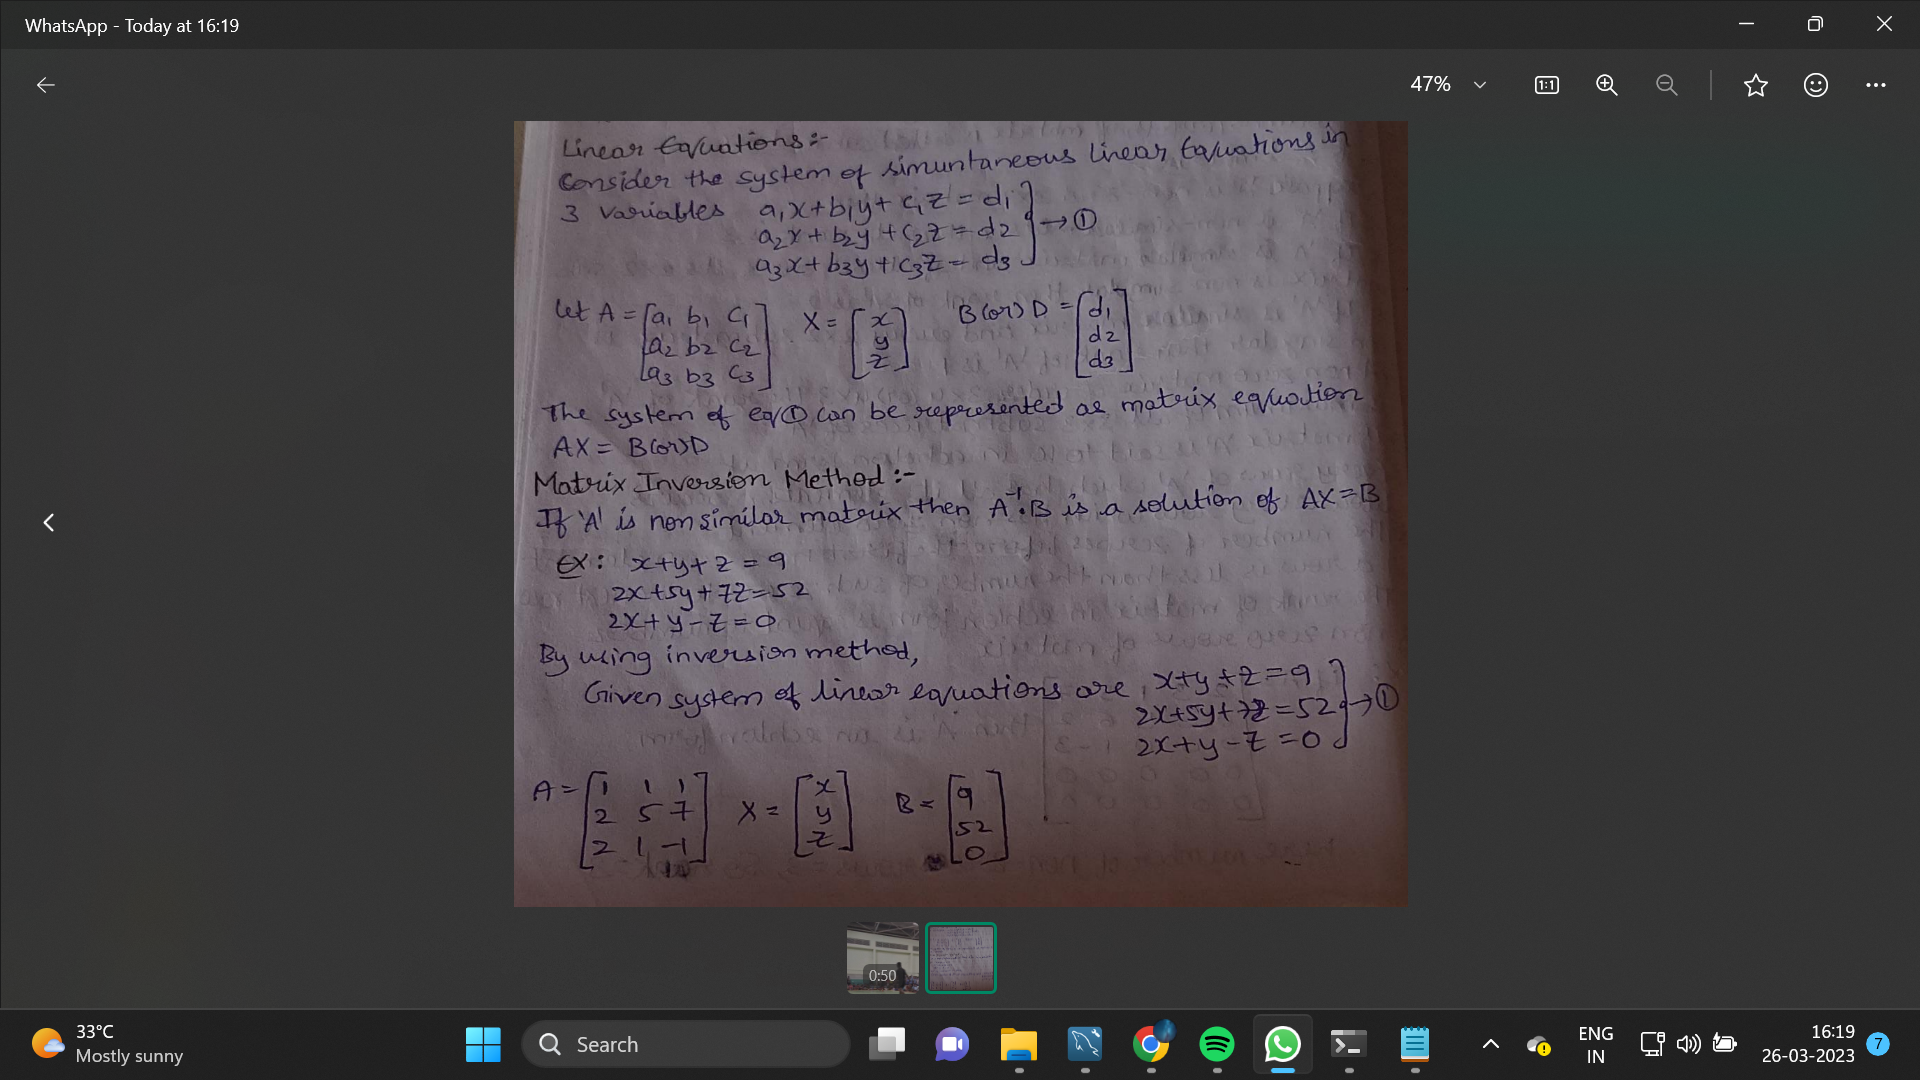 WhatsApp - Today at 16:19
47%
1:1
Linear Equations:-
Consider the system of simuntaneous linear Equations in
3 variables a₁x+b₁y+c₁z = d₁
a₂x + b₂y + c₂z = d2 → ①
a₃x + b₃y + c₃z = d₃
let A = [a₁ b₁ c₁ X = [x B(or) D = [d₁
a₂ b₂ c₂ y d2
a₃ b₃ c₃] z] d₃]
The system of eq① can be represented as matrix equation
AX = B(or)D
Matrix Inversion Method :-
If 'A' is nonsimilar matrix then A⁻¹.B is a solution of AX=B
Ex: x+y+z = 9
2x+5y+7z=52
2x+y-z=0
By using inversion method,
Given system of linear equations are x+y+z=9
2x+5y+7z=52 → ①
2x+y-z=0
A = [1 1 1 X = [x B = [9
2 5 7 y 52
2 1 -1] z] 0]
0:50
33°C
Mostly sunny
Search
ENG
IN
16:19
26-03-2023
7